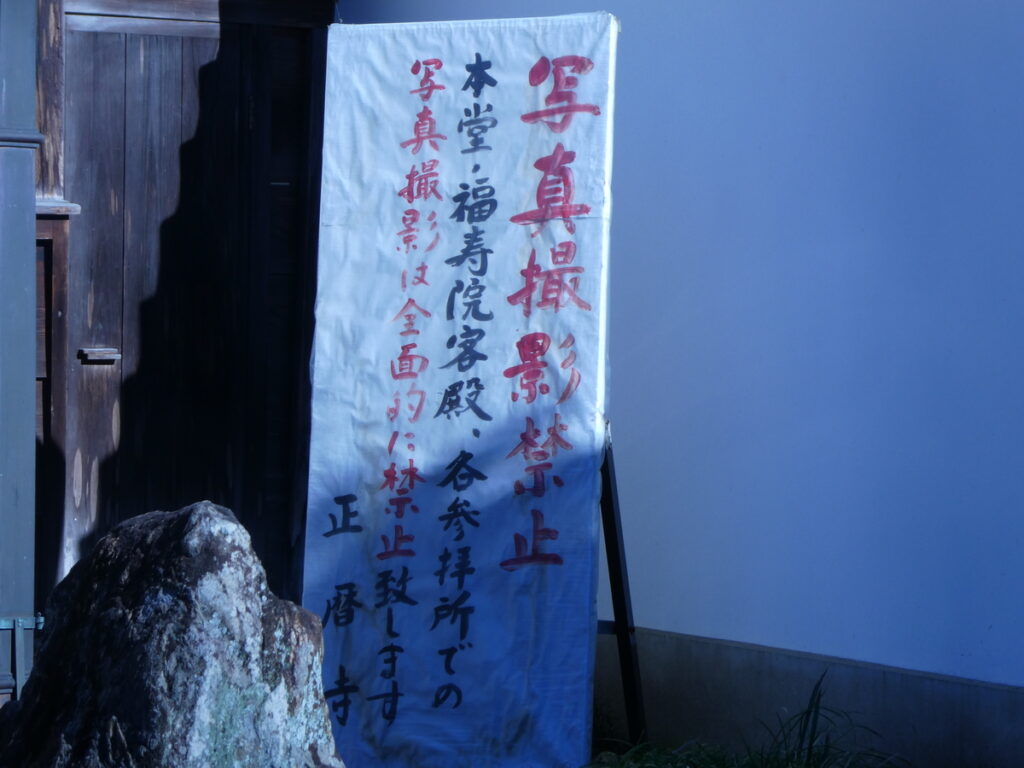 写真撮影禁止
本堂・福寿院客殿、各参拝所での
写真撮影は全面的に禁止致します
正暦寺